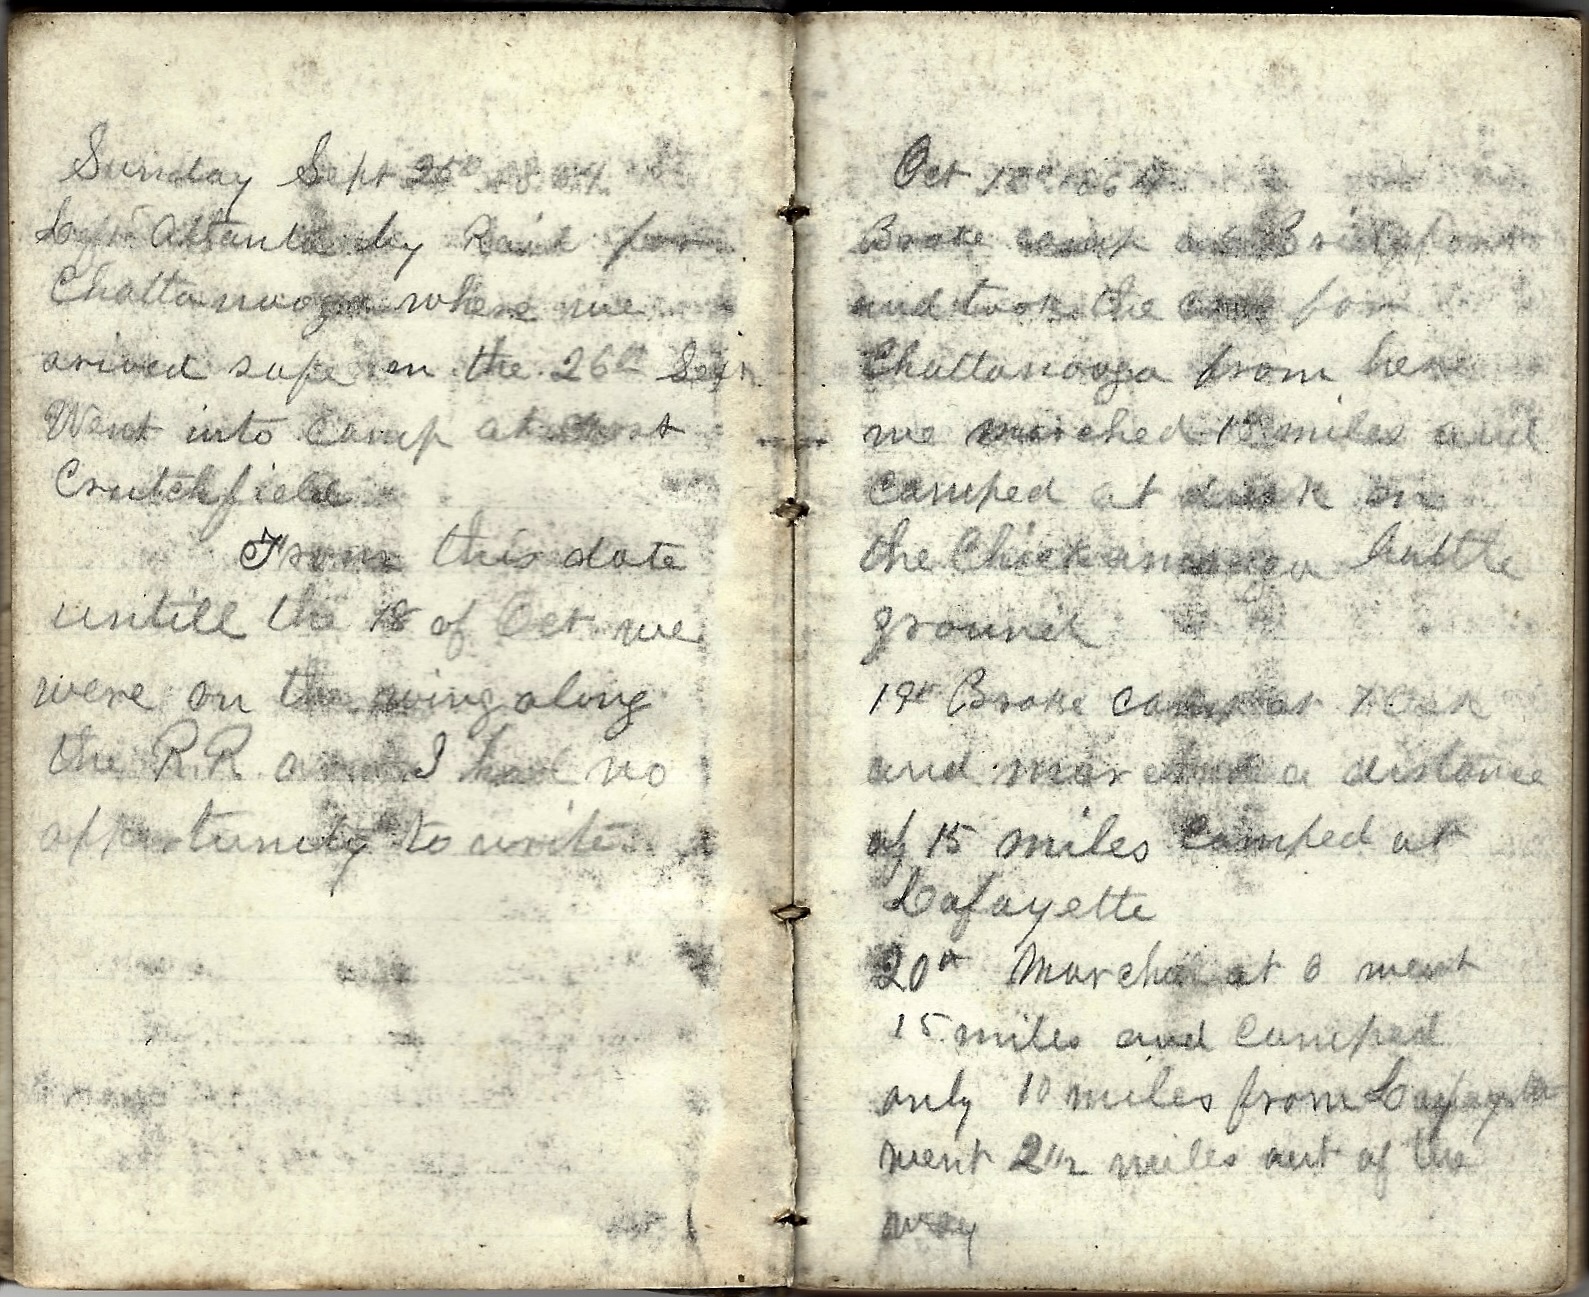 Sunday Sept 25th 1864
Left Atlanta by Rail for
Chattanooga where we
arived safe on the 26th Sept
Went into Camp at
Crutchfield
From this date
untill the 18 of Oct we
were on the wing along
the R.R and I had no
oppertunity to write
Oct 18th 1864
Broke camp at Bridgeport
and took the cars for
Chattanooga from here
we marched miles and
camped at dusk on
the Chickamauga battle
ground
19th Broke camp at
and marched a distance
of 15 miles Camped at
Lafayette
20th Marched at 6 went
15 miles and Camped
only 10 miles from Lafayette
went 2 1/2 miles out of the
way